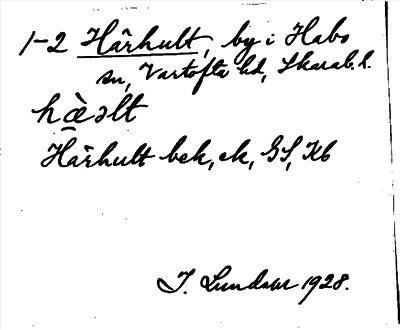 1-2 Hårhult, by i Habo
sn, Vartofta hd, Skarab. l.
hæ̀əlt
Hårhult bek, ek, GS, Kb
J. Lundahl 1928.